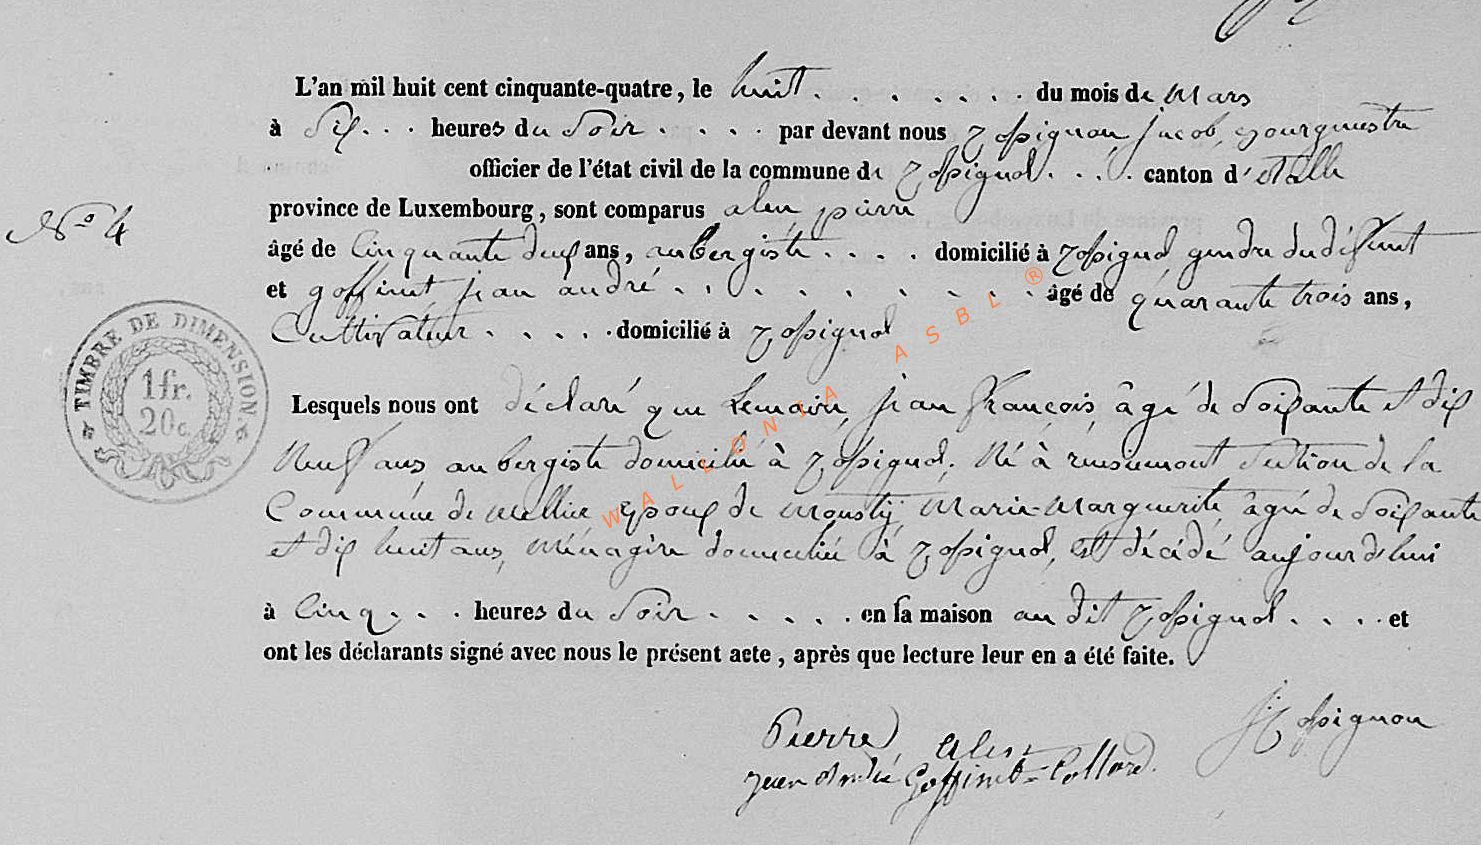 L'an mil huit cent cinquante-quatre, le huit . . . . . . . du mois de Mars
à Six . . . heures du Soir . . . . par devant nous Rossignon, jacob, Bourgmestre
officier de l'état civil de la commune de Rossignol . . . . canton d'Etalle
province de Luxembourg, sont comparus pierre
N° 4
âgé de Cinquante deux ans, aubergiste . . . . domicilié à Rossignol, gendre du défunt
et goffinet, jean andré . . . . . . . . . âgé de quarante trois ans,
Cultivateur . . . . . domicilié à Rossignol
TIMBRE DE DIMENSION
1 fr.
20 c.
Lesquels nous ont déclaré que Lemaire, jean françois, âgé de Soixante et dix
Neuf ans, aubergiste domicilié à Rossignol, Né à rusiemont Section de la
Commune de Mellier, Epoux de Mousty, Marie-Marguerite, âgée de Soixante
et dix huit ans, Ménagère domiciliée à Rossignol, est décédé aujourd'hui
à Cinq . . . heures du Soir . . . . . en sa maison au dit Rossignol . . . . et
ont les déclarants signé avec nous le présent acte, après que lecture leur en a été faite.
J Rossignon
Pierre
Jean André Goffinet-Collard.
WALLONIA ASBL ®